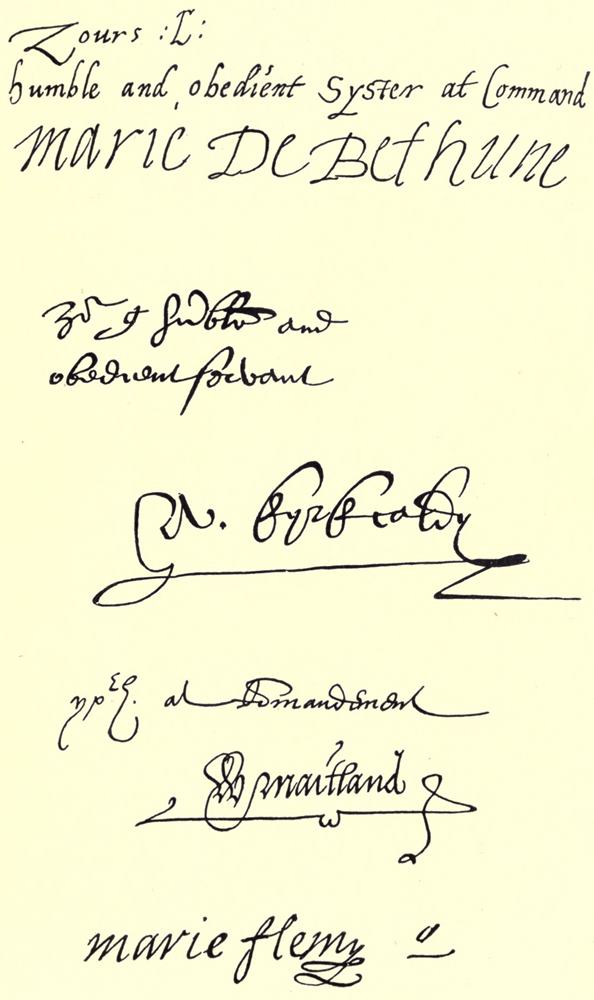 Zours :L:
humble and obedient Syster at Command
marie De Bethune
and
obedient servant
W. kyrkcaldy
at Comandement
W maitland
marie flemy